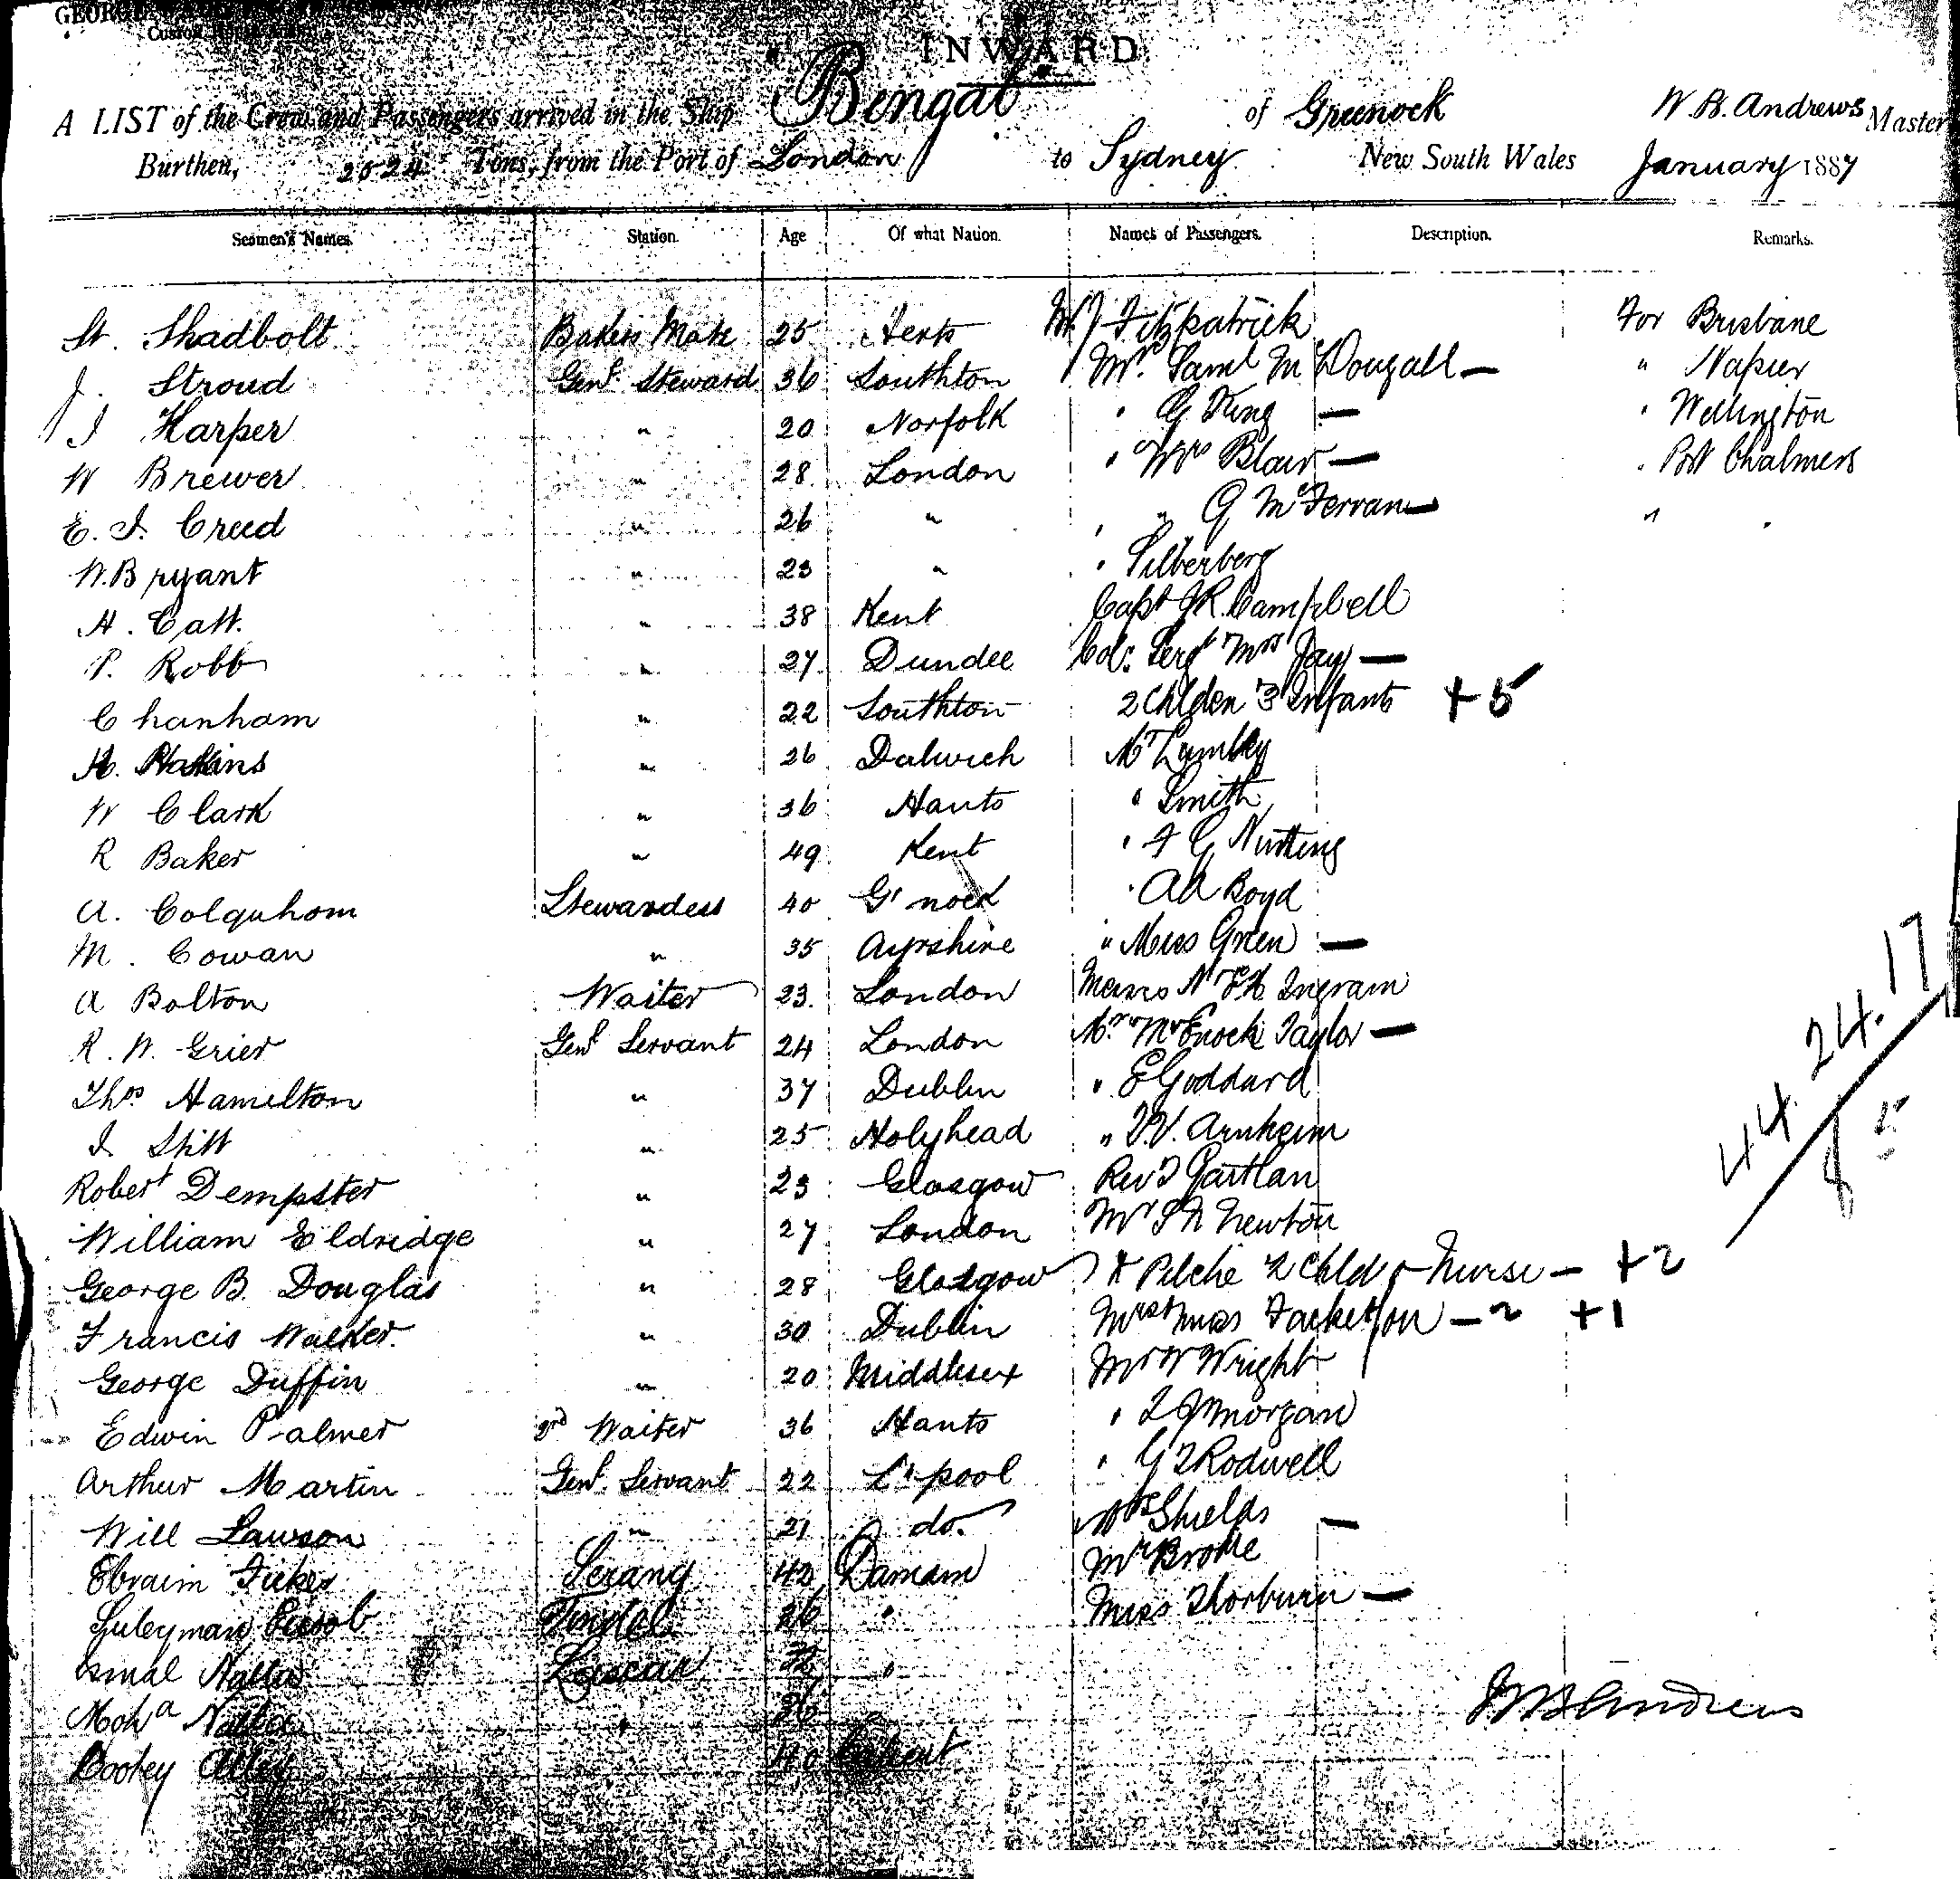 INWARD
A LIST of the Crew and Passengers arrived in the Ship Bengal of Greenock W. B. Andrews Master
Burthen, 2524 Tons, from the Port of London to Sydney New South Wales January 1887
Seamen's Names. Station. Age Of what Nation. Names of Passengers. Description. Remarks.
St. Shadbolt Bakers Mate 25 Herts Fitzpatrick For Brisbane
J. Stroud Genl. Steward 36 Southton Mr. Saml McDougall — " Napier
J Harper " 20 Norfolk " G King — " Wellington
W Brewer " 28 London " Mrs Blair — " Port Chalmers
E. J. Creed " 26 " " " G McFerran — " "
W. Bryant " 23 " " Silberberg
A. Catt. " 38 Kent Capt J R. Campbell
P. Robb " 27 Dundee Col: Sergt Mrs Jay —
C hanham " 22 Southton 2 Chlden 3 Infants + 5
H. " 26 Dulwich Mr Lumley
W Clark " 36 Hants " Smith
R Baker " 49 Kent " F G Nutting
A. Colquhom Stewardess 40 Gr nock " A A Boyd
M. Cowan " 35 Ayrshire " Miss Green —
A Bolton Waiter 23. London Ingram
R. W. Grier Genl Servant 24 London Mr Enock Taylor —
Thos Hamilton " 37 Dublin " E Goddard
J Stitt " 25 Holyhead " V. V. Arnheim
Robert Dempster " 23 Glasgow Revd Gartlan
William Eldridge " 27 London Mr Newton
George B. Douglas " 28 Glasgow 2 Chld Nurse — +2
Francis Walker " 30 Dublin Miss — 2 +1
George Duffin " 20 Middlesex Mr W Wright
Edwin Palmer 3rd Waiter 36 Hants " Morgan
Arthur Martin Genl. Servant 22 L'pool " G Rodwell
Will Lawson " 21 do. Mrs Shields —
Ebraim Serang 42 Damam Mr
Suleyman Tindal 36 " Miss Thorburn —
Nalla Lascar "
Moha 36
40
44 24. 17
W B Andrews